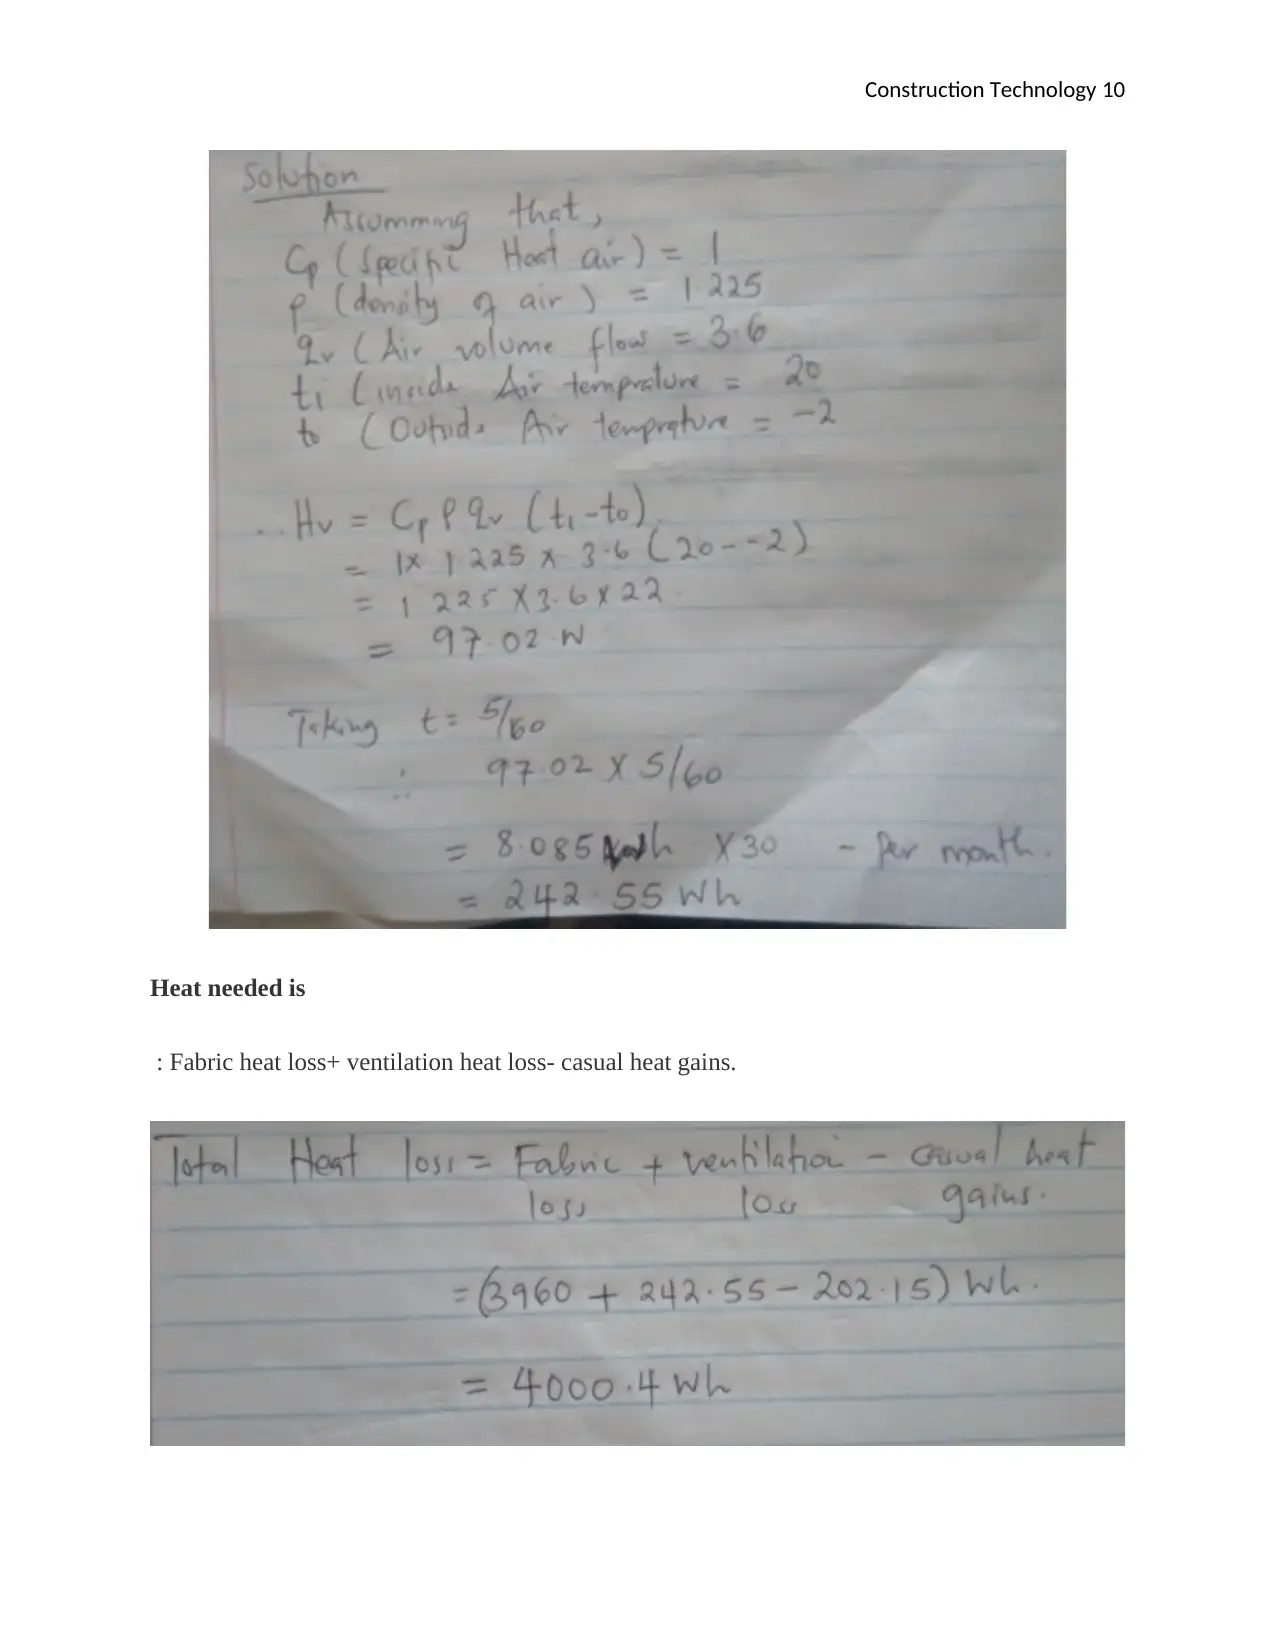 Construction Technology 10
Solution
Assumming that,
Cp (Specific Heat air) = 1
ρ (density of air) = 1.225
qv (Air volume flow = 3.6
ti (inside Air temprature = 20
to (Outside Air temprature = -2
Hv = Cp ρ qv (ti-to)
= 1x 1.225 x 3.6 (20--2)
= 1.225 x3.6 x 22
= 97.02 W
Taking t= 5/60
∴ 97.02 x 5/60
= 8.085 x30 - per month.
= 242.55 Wh
Heat needed is
: Fabric heat loss+ ventilation heat loss- casual heat gains.
Total Heat loss = Fabric + ventilation - casual heat
loss loss gains.
= (3960 + 242.55 - 202.15) Wh.
= 4000.4 Wh